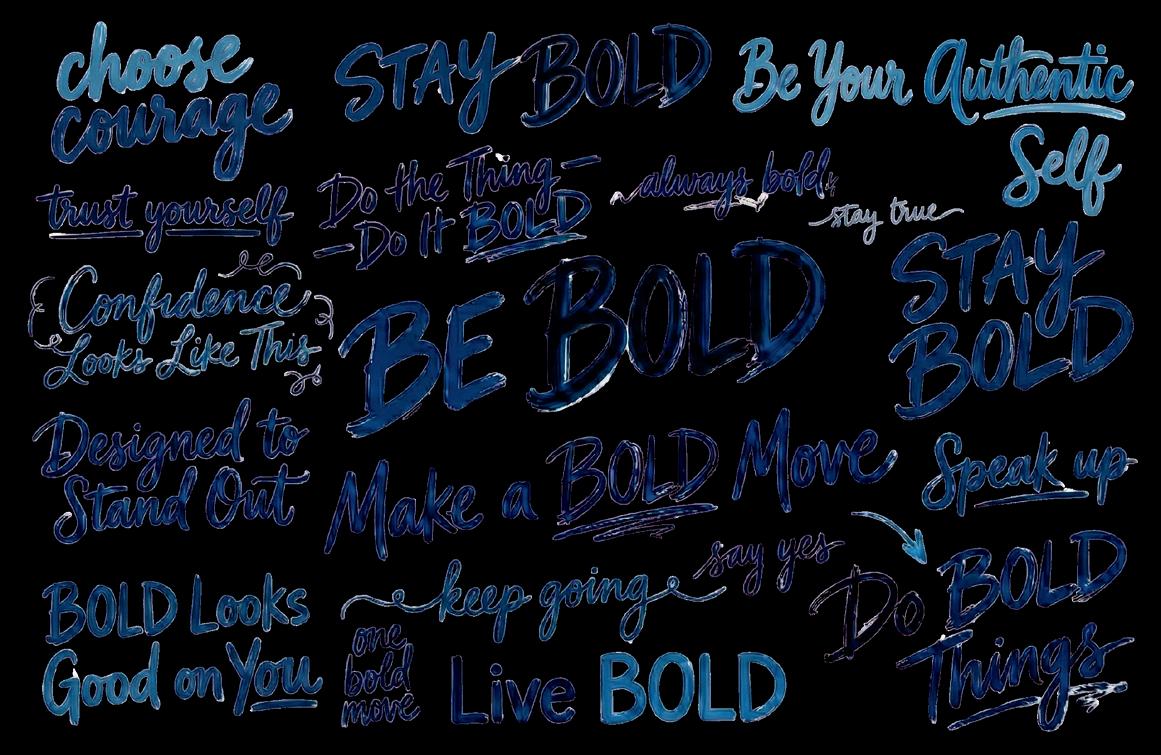 choose
courage
STAY BOLD
Be Your Authentic
Self
trust yourself
Do the Thing—
—Do It BOLD
always bold
stay true
Confidence
Looks Like This
BE BOLD
STAY
BOLD
Designed to
Stand Out
Make a BOLD Move
Speak up
say yes
keep going
Do BOLD
Things
BOLD Looks
Good on You
one
bold
move
Live BOLD